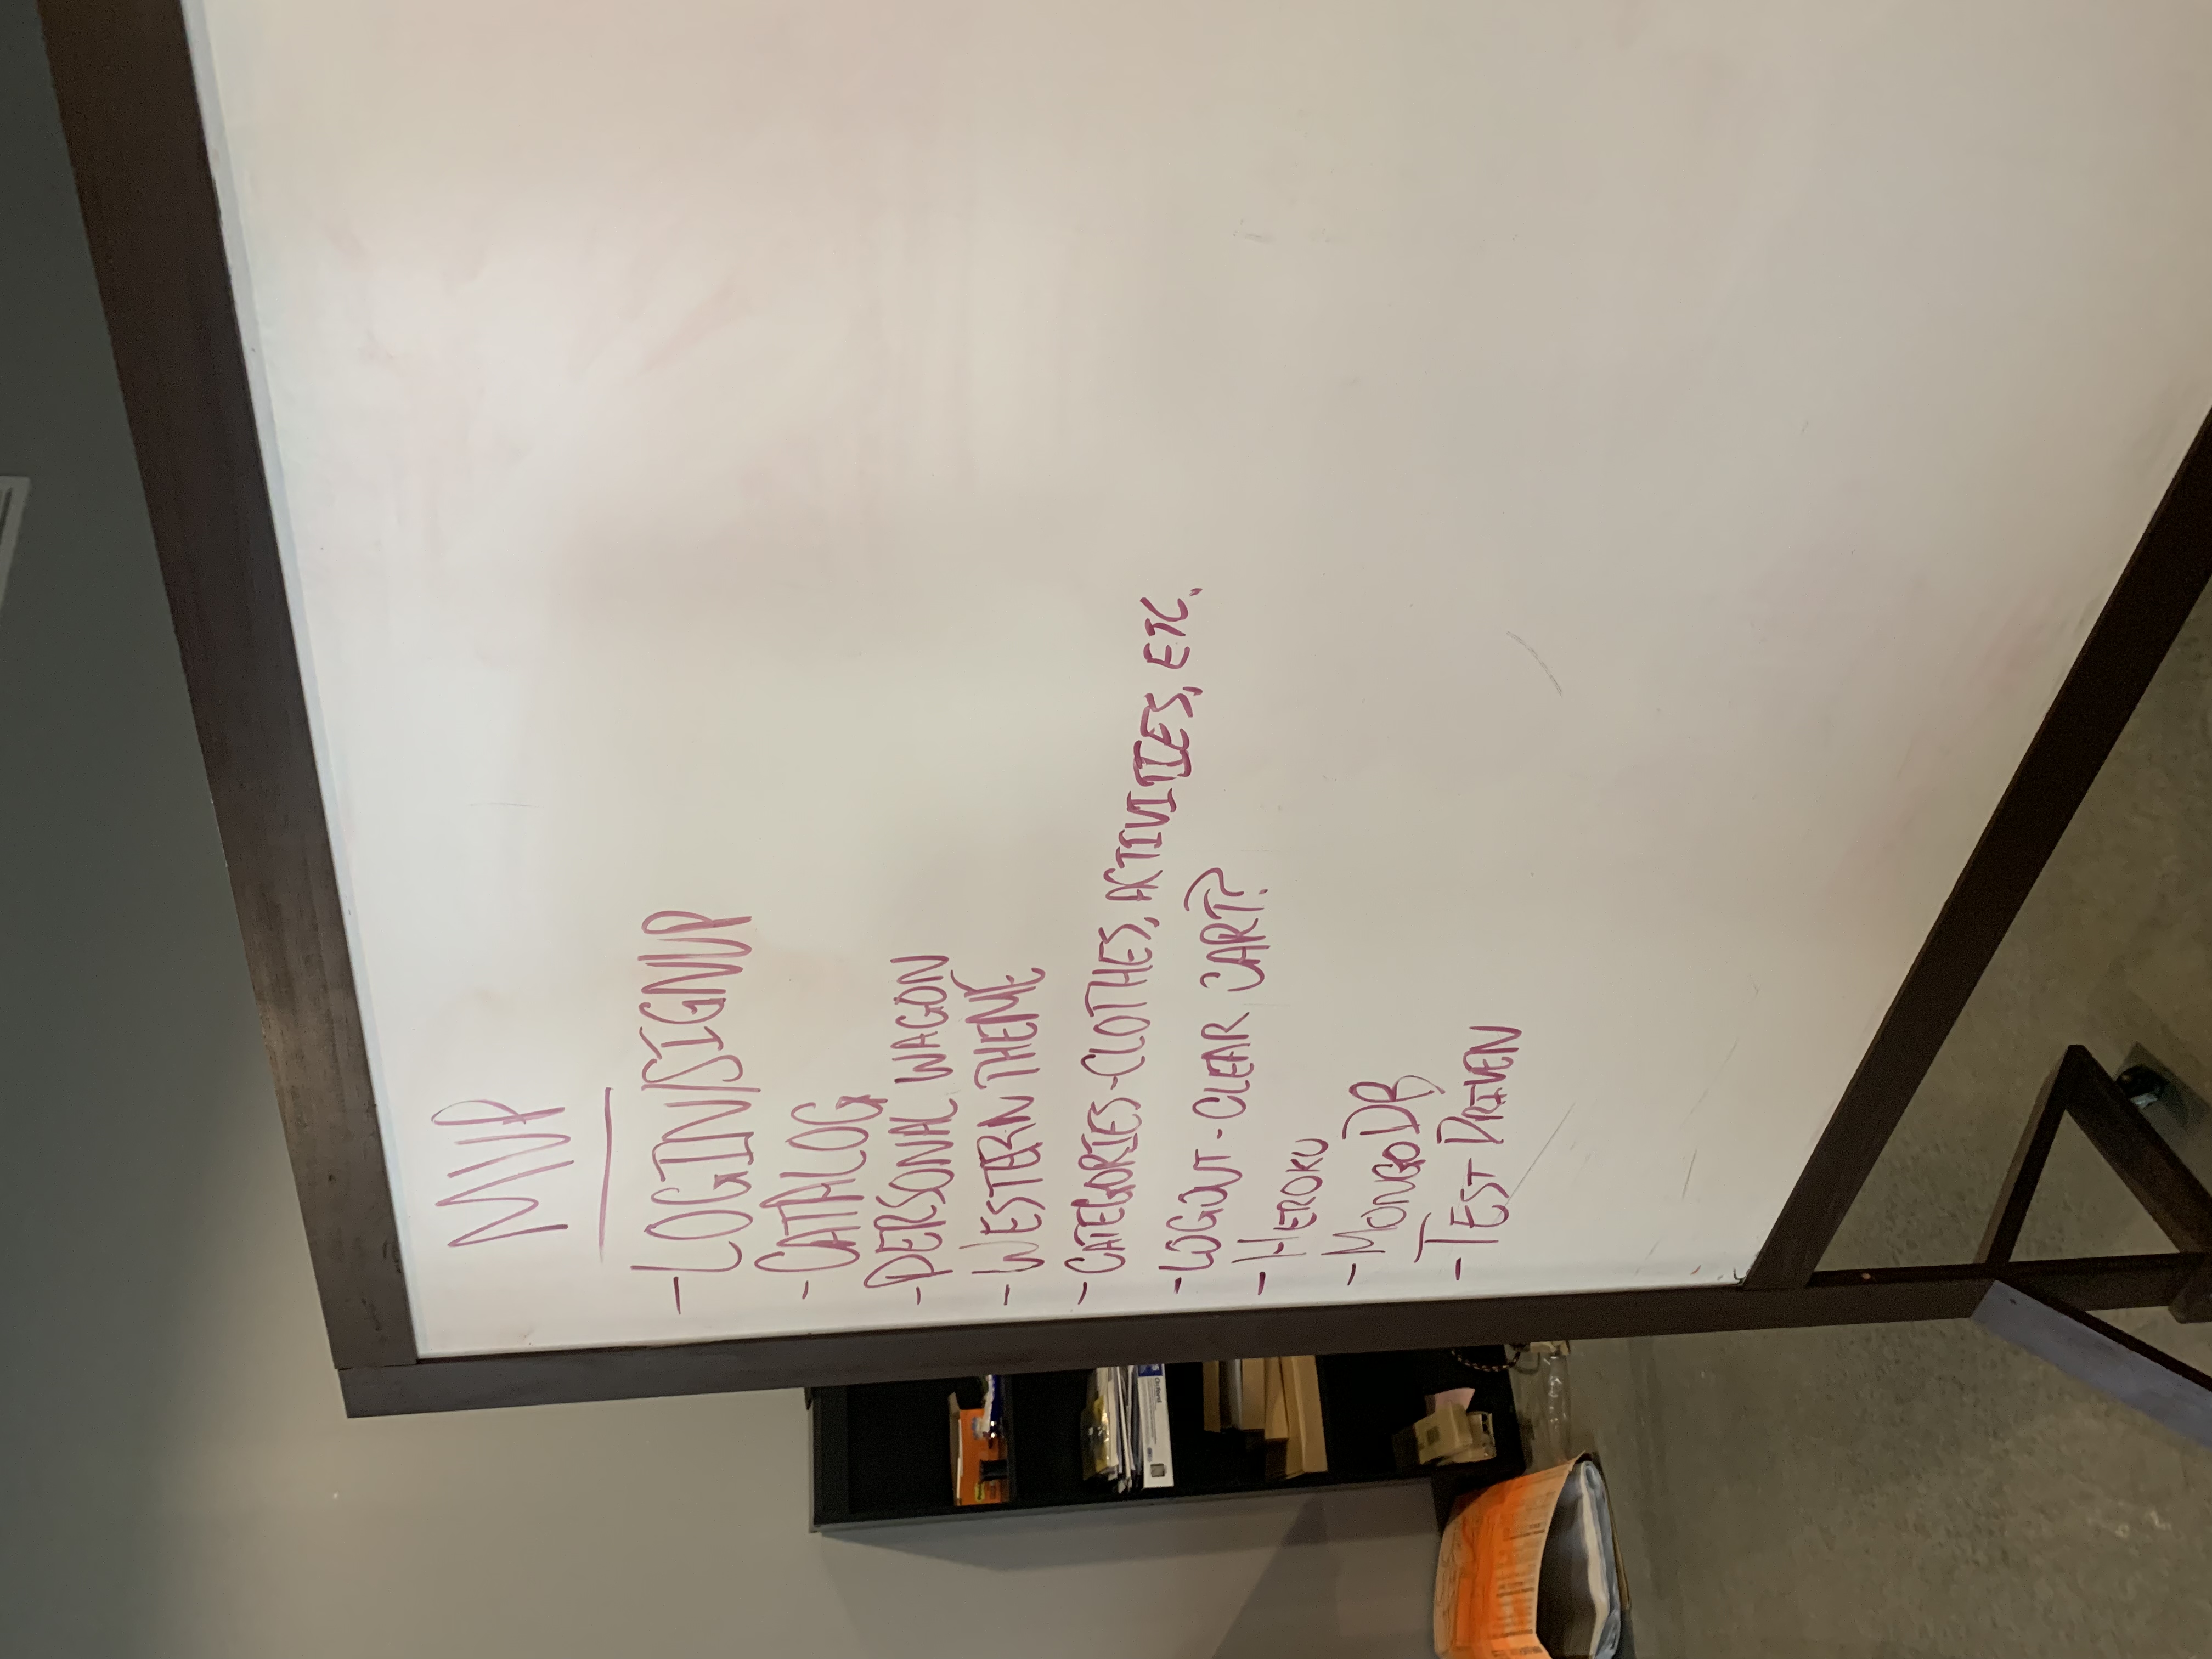 MVP
-LOGIN/SIGNUP
-CATALOG
-PERSONAL WAGON
-WESTERN THEME
-CATEGORIES-CLOTHES, ACTIVITIES, ETC.
-LOGOUT-CLEAR CART?
-HEROKU
-MONGODB
-TEST DRIVEN